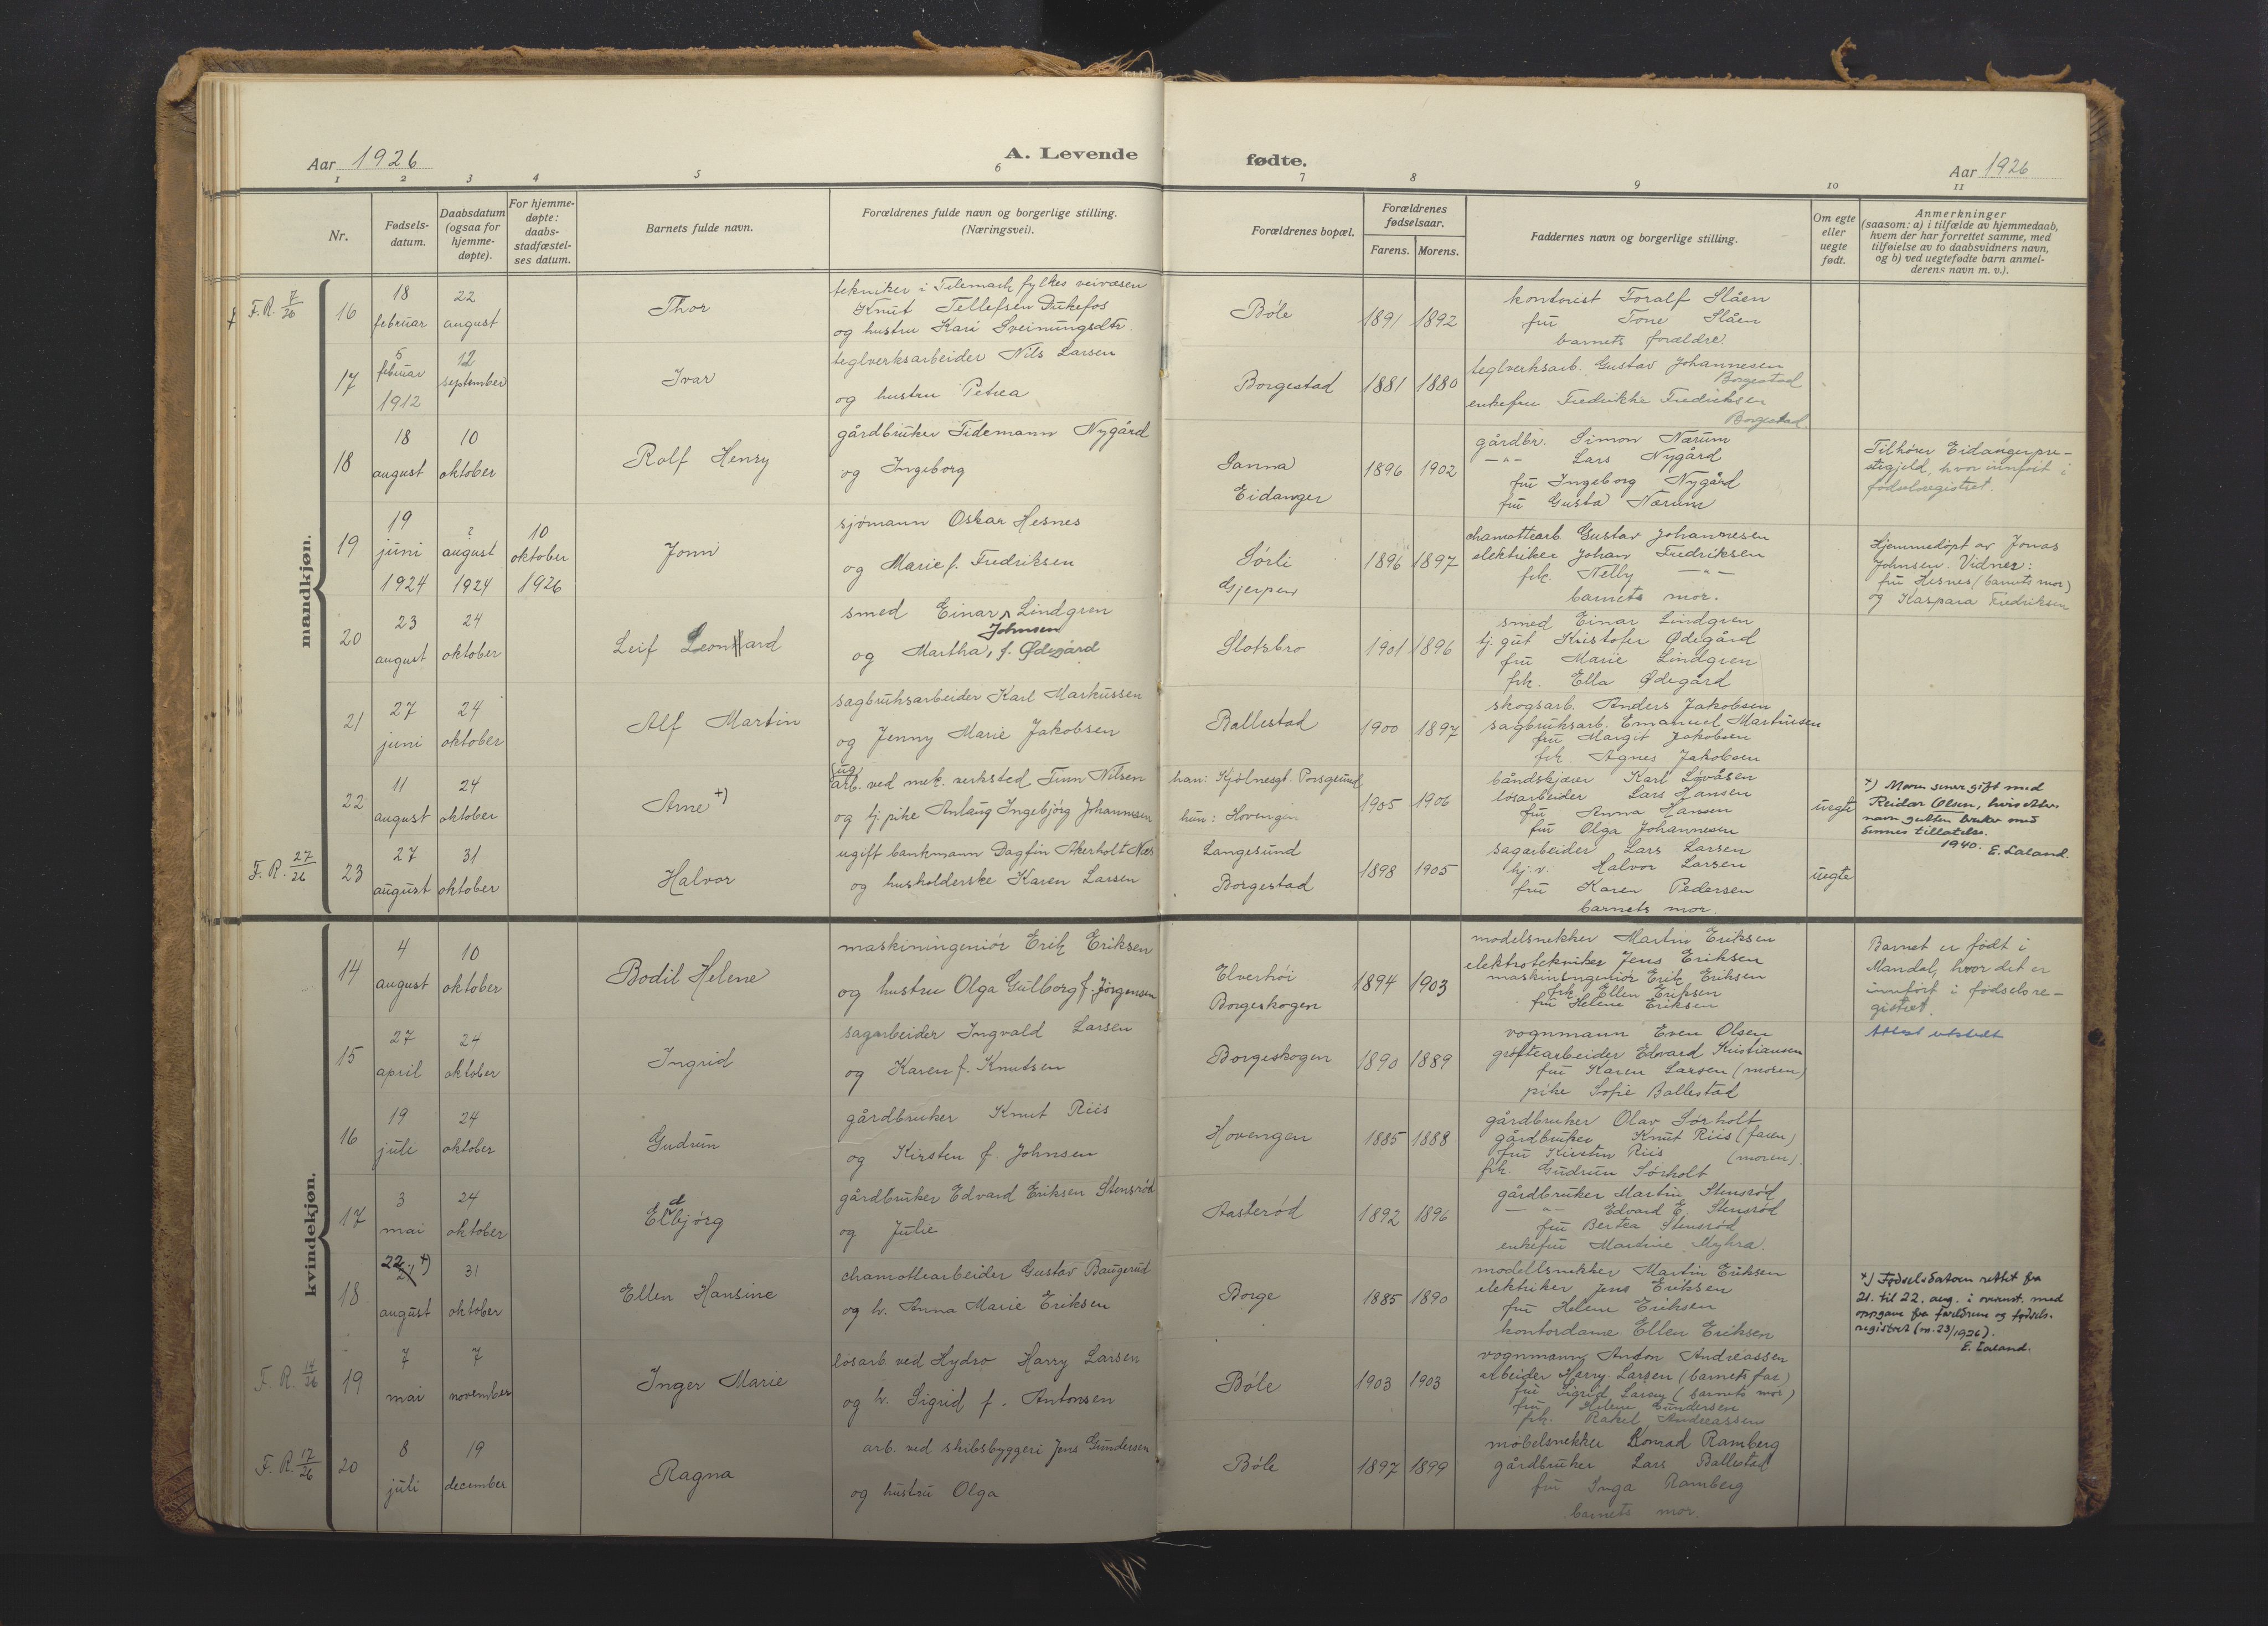 Aar 1926
A. Levende fødte.
Aar 1926
1 2 3 4 5 6 7 8 9 10 11
Nr.
Fødsels-
datum.
Daabsdatum
(ogsaa for
hjemme-
døpte).
For hjemme-
døpte:
daabs-
stadfæstel-
ses datum.
Barnets fulde navn.
Forældrenes fulde navn og borgerlige stilling.
(Næringsvei).
Forældrenes bopæl.
Forældrenes
fødselsaar.
Farens. Morens.
Faddernes navn og borgerlige stilling.
Om egte
eller
uegte
født.
Anmerkninger
(saasom: a) i tilfælde av hjemmedaab,
hvem der har forrettet samme, med
tilføielse av to daabsvidners navn,
og b) ved uegtefødte barn anmel-
derens navn m. v.).
mandkjøn.
F.R. 7/26
16
18
februar
22
august
Thor
tekniker i Telemark fylkes veivæsen
Knut Tellefsen Dukefos
og hustru Kari Sveinungsdtr.
Bøle
1891 1892
kontorist Toralf Slåen
fru Tone Slåen
barnets forældre
17
5
februar
1912
12
september
Ivar
teglverksarbeider Nils Larsen
og hustru Petrea
Borgestad
1881 1880
teglverksarb. Gustav Johannesen
Borgestad
enkefru Fredrikke Fredriksen
Borgestad.
18
18
august
10
oktober
Rolf Henry
gårdbruker Tidemann Nygård
og Ingeborg
Sanna
Eidanger
1896 1902
gårdbr. Simon Nærum
—"— Lars Nygård
fru Ingeborg Nygård
fru Gusta Nærum
Tilhører Eidanger pre-
stegjeld, hvor innført i
fødselsregistret.
19
19
juni
1924
?
august
1924
10
oktober
1926
Jonn
sjømann Oskar Hesnes
og Marie f. Fredriksen
Sørli
Gjerpen
1896 1897
chamottearb. Gustav Johannesen
elektriker Johan Fredriksen
frk. Nelly —"—
barnets mor.
Hjemmedøpt av Jonas
Johnsen. Vidner:
fru Hesnes (barnets mor)
og Kaspara Fredriksen
20
23
august
24
oktober
Leif Leonhard
smed Einar Lindgren
Johnsen
og Martha, f. Ødegård
Slotsbro
1901 1896
smed Einar Lindgren
tj.gut Kristofer Ødegård
fru Marie Lindgren
frk. Ella Ødegård
21
27
juni
24
oktober
Alf Martin
sagbruksarbeider Karl Markussen
og Jenny Marie Jakobsen
Ballestad
1900 1897
skogsarb. Anders Jakobsen
sagbruksarb. Emanuel Martinsen
fru Margit Jakobsen
frk. Agnes Jakobsen
22
11
august
24
oktober
Arne +)
ug.
arb. ved mek. verksted Finn Nilsen
og tj. pike Anlaug Ingebjørg Johannesen
han: Kjølnesgt. Porsgrund
hun: Hovengen
1905 1906
båndskjærer Karl Løvåsen
løsarbeider Lars Hansen
fru Anna Hansen
fru Olga Johannesen
uegte
+) Moren senere gift med
Reidar Olsen, hvis etter-
navn gutten bruker med
dennes tillatelse.
1940. E. Laland.
F. R. 27/26
23
27
august
31
oktober
Halvor
ugift bankmann Dagfin Akerholt Næs
og husholderske Karen Larsen
Langesund
Borgestad
1898 1905
sagarbeider Lars Larsen
hj.v. Halvor Larsen
fru Karen Pedersen
barnets mor.
uegte
kvindekjøn.
14
4
august
10
oktober
Bodil Helene
maskiningeniør Erik Eriksen
og hustru Olga Gulborg f. Jørgensen
Elverhøi
Borgeskogen
1894 1903
modelsnekker Martin Eriksen
elektrotekniker Jens Eriksen
maskiningeniør Erik Eriksen
frk. Ellen Eriksen
fru Helene Eriksen
Barnet er født i
Mandal, hvor det er
innført i fødselsre-
gistret.
15
27
april
24
oktober
Ingrid
sagarbeider Ingvald Larsen
og Karen f. Knutsen
Borgeskogen
1890 1889
vognmann Even Olsen
grøftearbeider Edvard Kristiansen
fru Karen Larsen (moren)
pike Sofie Ballestad
Attest utstedt
16
19
juli
24
oktober
Gudrun
gårdbruker Knut Riis
og Kirsten f. Johnsen
Hovengen
1885 1888
gårdbruker Olav Sørholt
gårdbruker Knut Riis (faren)
fru Kirsten Riis (moren).
frk. Gudrun Sørholt
17
3
mai
24
oktober
Eldbjørg
gårdbruker Edvard Eriksen Stensrød
og Julie
Aasterød
1892 1896
gårdbruker Martin Stensrød
—"— Edvard E. Stensrød
fru Bertea Stensrød
enkefru Martine Myhra.
18
22. 21 +)
august
31
oktober
Ellen Hansine
chamottearbeider Gustav Baugerud
og h. Anna Marie Eriksen
Borge
1885 1890
modellsnekker Martin Eriksen
elektriker Jens Eriksen
fru Helene Eriksen
kontordame Ellen Eriksen
+) Fødselsdatoen rettet fra
21. til 22. aug. i overenst. med
oppgave fra foreldrene og fødsels-
registret (nr. 23/1926).
E. Laland.
F. R. 14/26
19
7
mai
7
november
Inger Marie
løsarb. ved Hydro Harry Larsen
og h. Sigrid f. Antonsen
Bøle
1903 1903
vognmann Anton Andreassen
arbeider Harry Larsen (barnets far)
fru Sigrid Larsen (barnets mor)
fru Helene Gundersen
frk. Rakel Andreassen
F. R. 17/26
20
8
juli
19
december
Ragna
arb. ved skibsbyggeri Jens Gundersen
og hustru Olga
Bøle
1897 1899
møbelsnekker Konrad Ramberg
gårdbruker Lars Ballestad
fru Inga Ramberg
barnets mor.